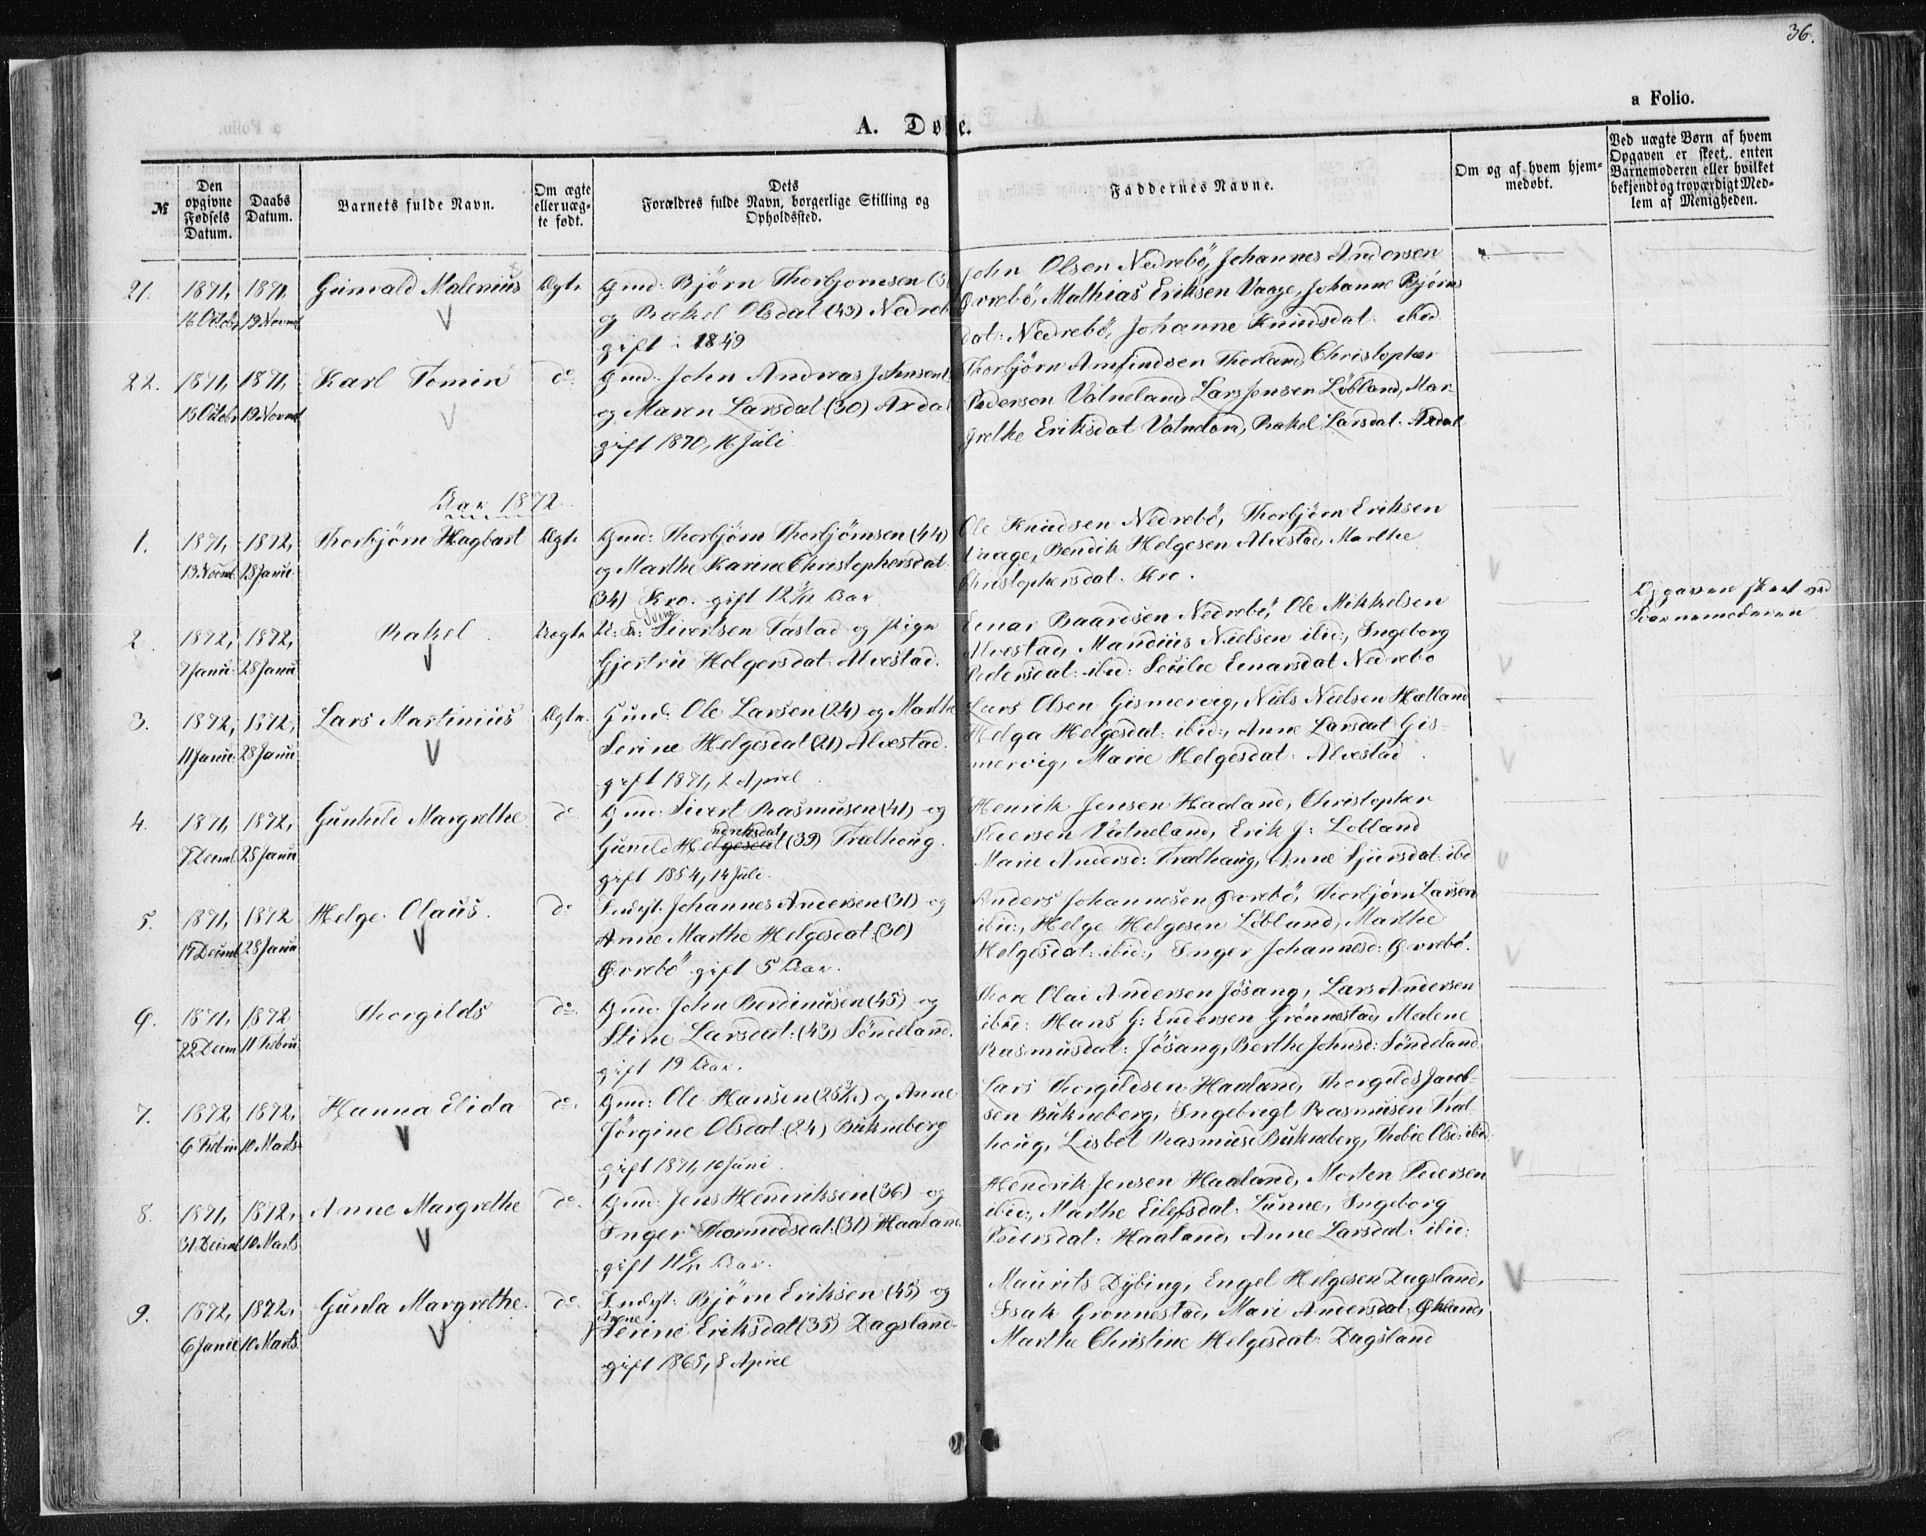 36.
a Folio.
A. Døbte.
№
Den opgivne Fødsels Datum.
Daabs Datum.
Barnets fulde Navn.
Om ægte eller uægte født.
Dets Forældres fulde Navn, borgerlige Stilling og Opholdssted.
Faddernes Navne.
Om og af hvem hjemmedøbt.
Ved uægte Børn af hvem Opgaven er skeet, enten Barnemoderen eller hvilket bekjendt og troværdigt Medlem af Menigheden.
21. 1871, 16 Octobr 1871, 19 Novmb Gunvald Malenius Ægte
Gmd. Bjørn Thorbjørnsen
og Rakel Olsdat (43) Nedreb
gift i 1849
John Olsen Nedrebö, Johannes Andersen
Øvrebö, Mathias Eriksen Vaage, Johanne Bjørns
dat: Nedrebö, Johanne Knudsdat: ibid
22. 1871, 15 Octobr 1871, 19 Novmb Karl Tomin do
Gmd. John Andreas Johnsen
og Maren Larsdat: (30) Axdal
gift 1870, 16 Juli
Thorbjörn Amfindsen Thorland, Christopher
Pedersen Vatneland, Lars Jensen Løbland, Mar-
grethe Eriksdat Vatndan, Rakel Larsdat: Axdal
Aar 1872.
1. 1871, 13 Novmb 1872, 28 Janu Thorbjørn Hagbart Ægte
Gmd: Thorbjørn Thorbjørnsen (44)
og Marthe Karine Christophersdat
(34) Kro. gift 12 Aar
Ole Knudsen Nedrebö, Thorbjørn Eriksen
Vaage, Bendik Helgesen Alvestad, Marthe
Christophersdat. Kro.
2. 1872, 7 Janu 1872, 28 Janu Rakel Uægte
Sivertsen Tastad og Pige
Gjertru Helgersdat: Alvestad.
Einar Baardsen Nedrebö, Ole Mikkelsen
Alvestad, Mandius Nielsen ibid:, Ingeborg
Pedersdat: ibid: Secilie Einarsdat Nedrebö
Opgaven skeet ved
Barnemoderen
3. 1872, 11 Janu 1872, 28 Janu Lars Martinius Ægte
Gmd: Ole Larsen (24) og Marthe
Serine Helgesdat (21) Alvestad.
gift 1871, 2 April
Lars Olsen Gismervig, Niels Nielsen Hetland
Helga Helgesdat: ibid:, Anne Larsdat Gis-
mervig, Marie Helgesdat: Alvestad
4. 1871, 7 Decmb 1872, 28 Janu Gunhild Margrethe do
Gmd: Sivert Rasmusen (41) og
Gunild Helgesdat Hendriksdat (39) Trælhoug.
gift 1854, 14 Juli.
Henrik Jensen Haaland, Christopher
Pedersen Vatneland, Erik J: Løbland
Marie Andersd: Trælhaug, Anne Sjursdat: ibd
5. 1871, 17 Decmb 1872 28 Janu Helge Olaus. do
Indst: Johannes Andersen (31) og
Anne Marthe Helgesdat: (30)
Øvrebö gift 5 Aar.
Anders Johannesen Øvrebö, Thorbjørn Larsen
ibid:, Helge Helgesen Løbland, Marthe
Helgesdat: ibid:, Inger Johannesd: Øvrebö.
6. 1871, 22 Decm 1872 11 Febru Thorgilds do
Gmd: John Berdinusen (45) og
Stine Larsdat: (43) Söndeland.
gift 19 Aar.
Thore Olai Andersen Jösang, Lars Andersen
ibid: Hans G: Endersen Grønnestad, Malene
Rasmusdat: Jösang, Berthe Johnsd: Söndeland
7. 1872, 6 Febru 1872, 10 Marts Hanna Elida do
Gmd: Ole Hansen (25) og Anne
Jörgine Olsdat: (24) Bukneberg
gift 1871, 10 Juni.
Lars Thorgildsen Haaland, Thorgilds Jacob-
sen Bukneberg, Ingebrigt Rasmusen Træl-
houg, Lisbet Rasmusd Bukneberg, Thobie Olsd: ibd
8. 1871, 31 Decmb 1872, 10 Marts Anne Margrethe do
Gmd: Jens Hendriksen (36) og
Inger Thormodsdat: (31) Haaland
gift 11 Aar.
Hendrik Jensen Haaland, Morten Pedersen
ibid:, Marthe Eilefsdat: Lunne, Ingeborg
Pedersdat: Haaland, Anne Larsdat: ibid:
9. 1872, 6 Janu 1872, 10 Marts Gunla Margrethe. do
Indst: Bjørn Eriksen (45) og
Anne Serine Eriksdat (35) Dagsland.
gift 1865, 8 April
Maurits Dybing, Engel Helgesen Dagsland,
Isak Grønnestad, Mari Andersdat: Økland,
Marthe Christine Helgesdat: Dagsland